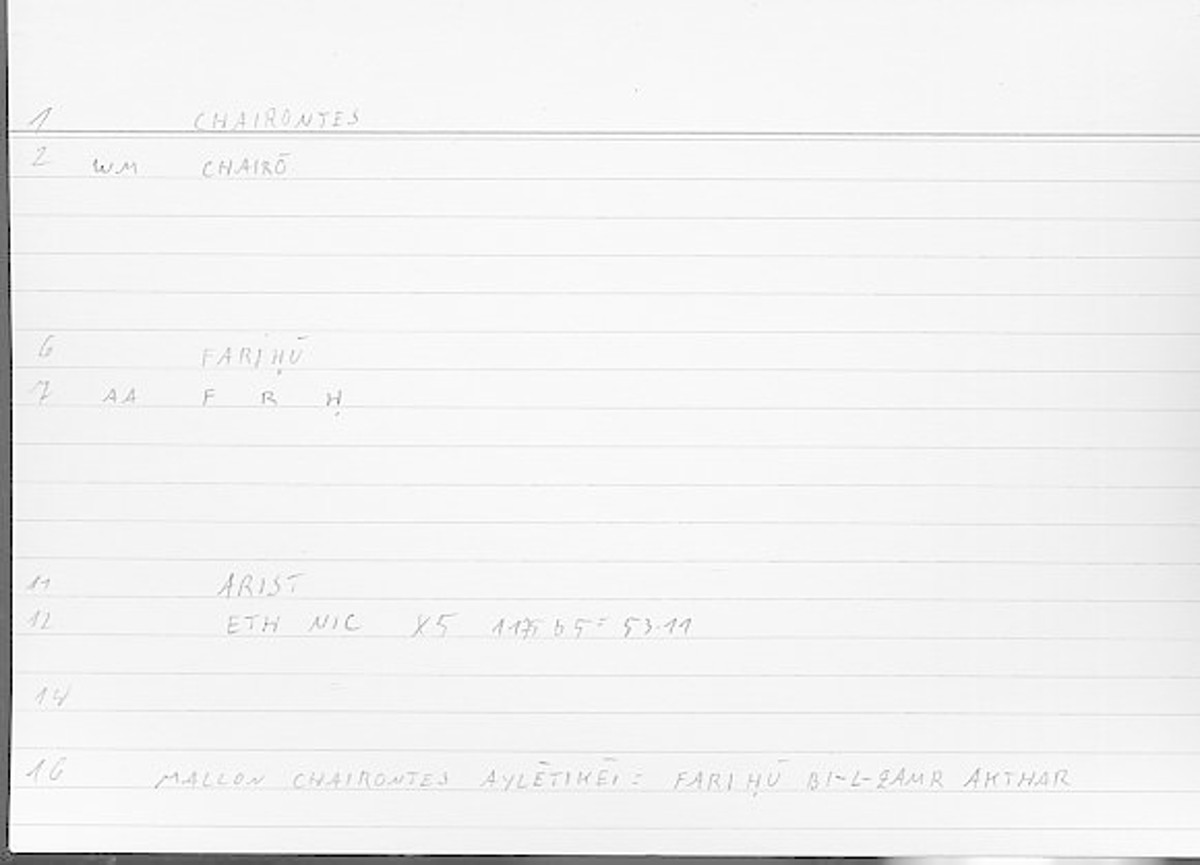 1 CHAIRONTES
2 WM CHAIRŌ
6 FARIḤŪ
7 AA F R Ḥ
11 ARIST
12 ETH NIC X5 1175 b 5 = 53.11
14
16 MALLON CHAIRONTES AYLĒTIKĒI = FARIḤŪ BI-L-ZAMR AKTHAR